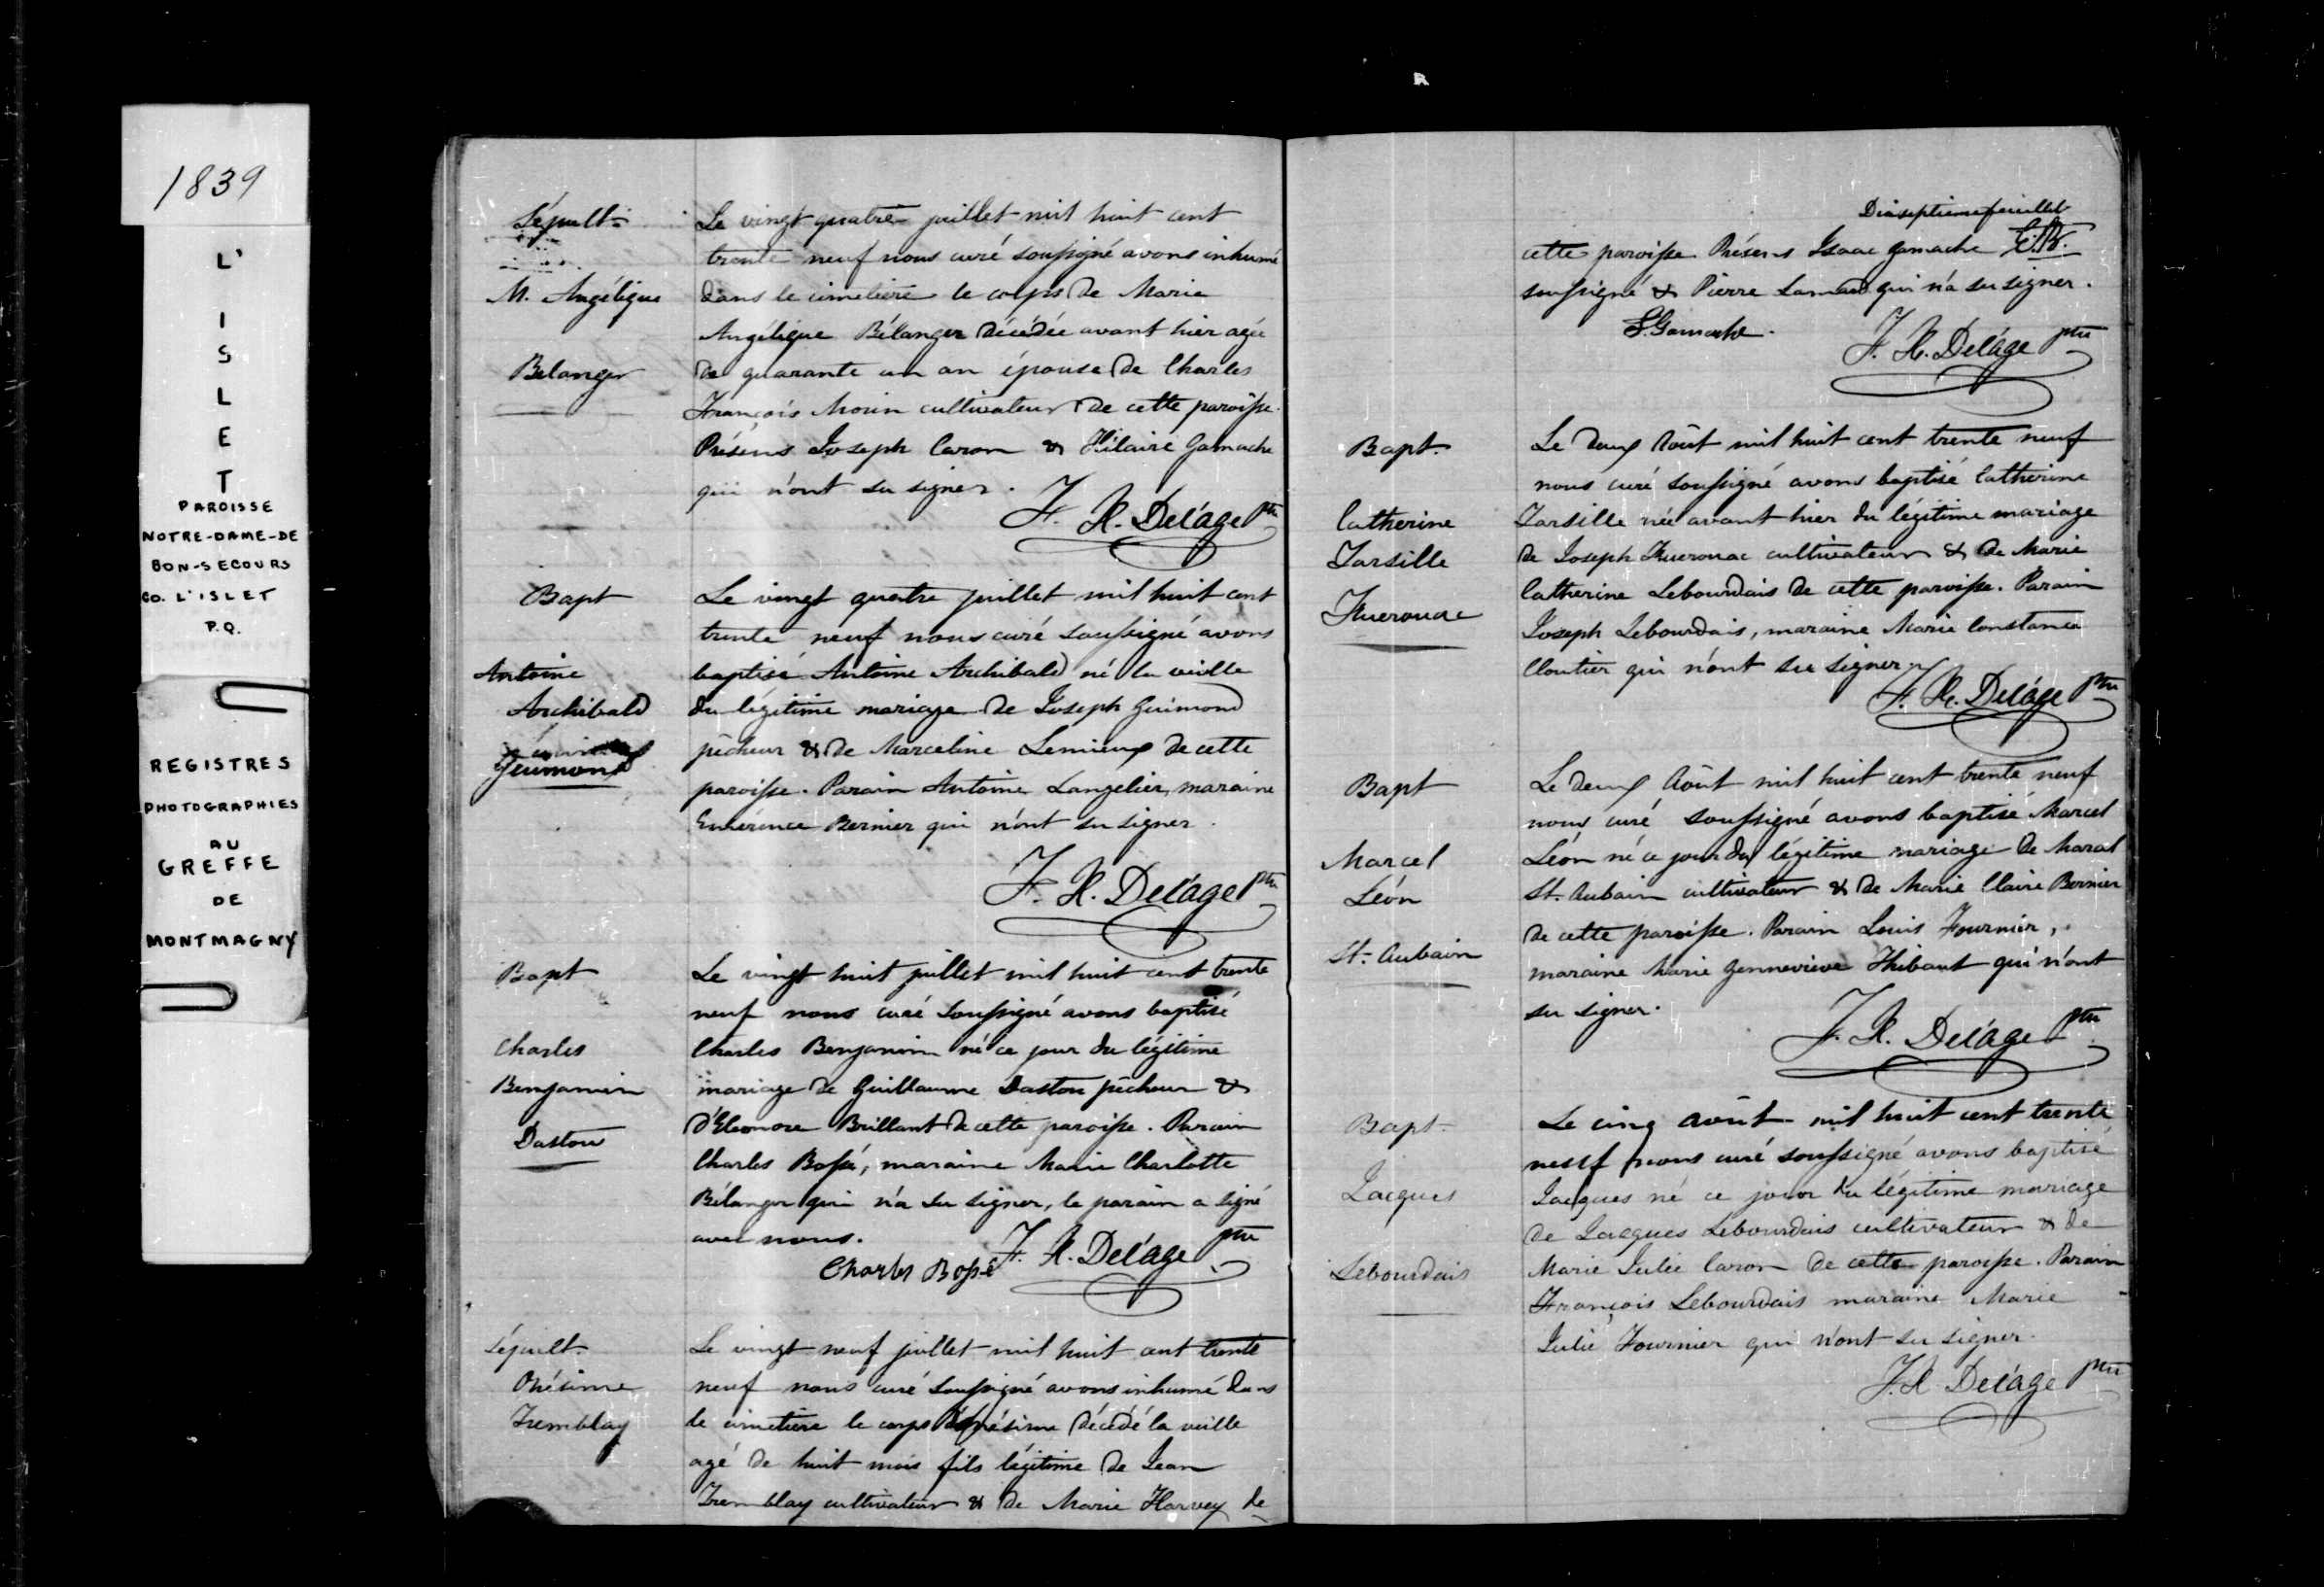 1839
L'
I
S
L
E
T
PAROISSE
NOTRE-DAME-DE
BON-SECOURS
CO. L'ISLET
P.Q.
REGISTRES
PHOTOGRAPHIES
AU
GREFFE
DE
MONTMAGNY
Sépult.
M. Angélique
Belanger
Le vingt quatre juillet mil huit cent
trente neuf nous curé soussigné avons inhumé
dans le cimetière le corps de Marie
Angélique Bélanger décédée avant hier agée
de quarante un an épouse de Charles
François Morin cultivateur de cette paroisse.
Présens Joseph Caron & Hilaire Gamache
qui n'ont su signer.
F. X. Delâge Ptre
Bapt
Antoine
Archibald
Guimond
Le vingt quatre juillet mil huit cent
trente neuf nous curé soussigné avons
baptisé Antoine Archibald né la veille
du légitime mariage de Joseph Guimond
pêcheur & de Marceline Lemieux de cette
paroisse. Parain Antoine Langelier, maraine
Emérence Bernier qui n'ont su signer.
F. X. Delâge Ptre
Bapt
Charles
Benjamin
Dastou
Le vingt huit juillet mil huit cent trente
neuf nous curé soussigné avons baptisé
Charles Benjamin né ce jour du légitime
mariage de Guillaume Dastou pêcheur &
d'Eleonore Brillant de cette paroisse. Parain
Charles Bossé, maraine Marie Charlotte
Bélanger qui n'a su signer, le parain a signé
avec nous.
Charles Bossé F. X. Delâge ptre
Sépult.
Onésime
Tremblay
Le vingt neuf juillet mil huit cent trente
neuf nous curé soussigné avons inhumé dans
le cimetière le corps d'Onésime décédé la veille
agé de huit mois fils légitime de Jean
Tremblay cultivateur & de Marie Harvey de
Dixseptieme feuillet
cette paroisse Présens Isaac Gamache
soussigné & Pierre qui n'a su signer.
Gamache.
F. X. Delâge ptre
Bapt.
Catherine
Tarsille
Kuerouac
Le deux Août mil huit cent trente neuf
nous curé soussigné avons baptisé Catherine
Tarsille née avant hier du légitime mariage
de Joseph Kuerouac cultivateur & de Marie
Catherine Lebourdais de cette paroisse. Parain
Joseph Lebourdais, maraine Marie Constance
Cloutier qui n'ont su signer
F. X. Delâge Ptre
Bapt
Marcel
Léon
St. Aubain
Le deux Août mil huit cent trente neuf
nous curé soussigné avons baptisé Marcel
Léon né ce jour du légitime mariage de Marcel
St. Aubain cultivateur & de Marie Claire Bernier
de cette paroisse. Parain Louis Fournier,
maraine Marie Gennevieve Thibaut qui n'ont
su signer.
F. X. Delâge Ptre
Bapt.
Jacques
Lebourdais
Le cinq août mil huit cent trente
neuf nous curé soussigné avons baptisé
Jacques né ce jour du légitime mariage
de Jacques Lebourdais cultivateur & de
Marie Julie Caron de cette paroisse. Parain
François Lebourdais maraine Marie
Julie Fournier qui n'ont su signer.
F. X Delâge ptre